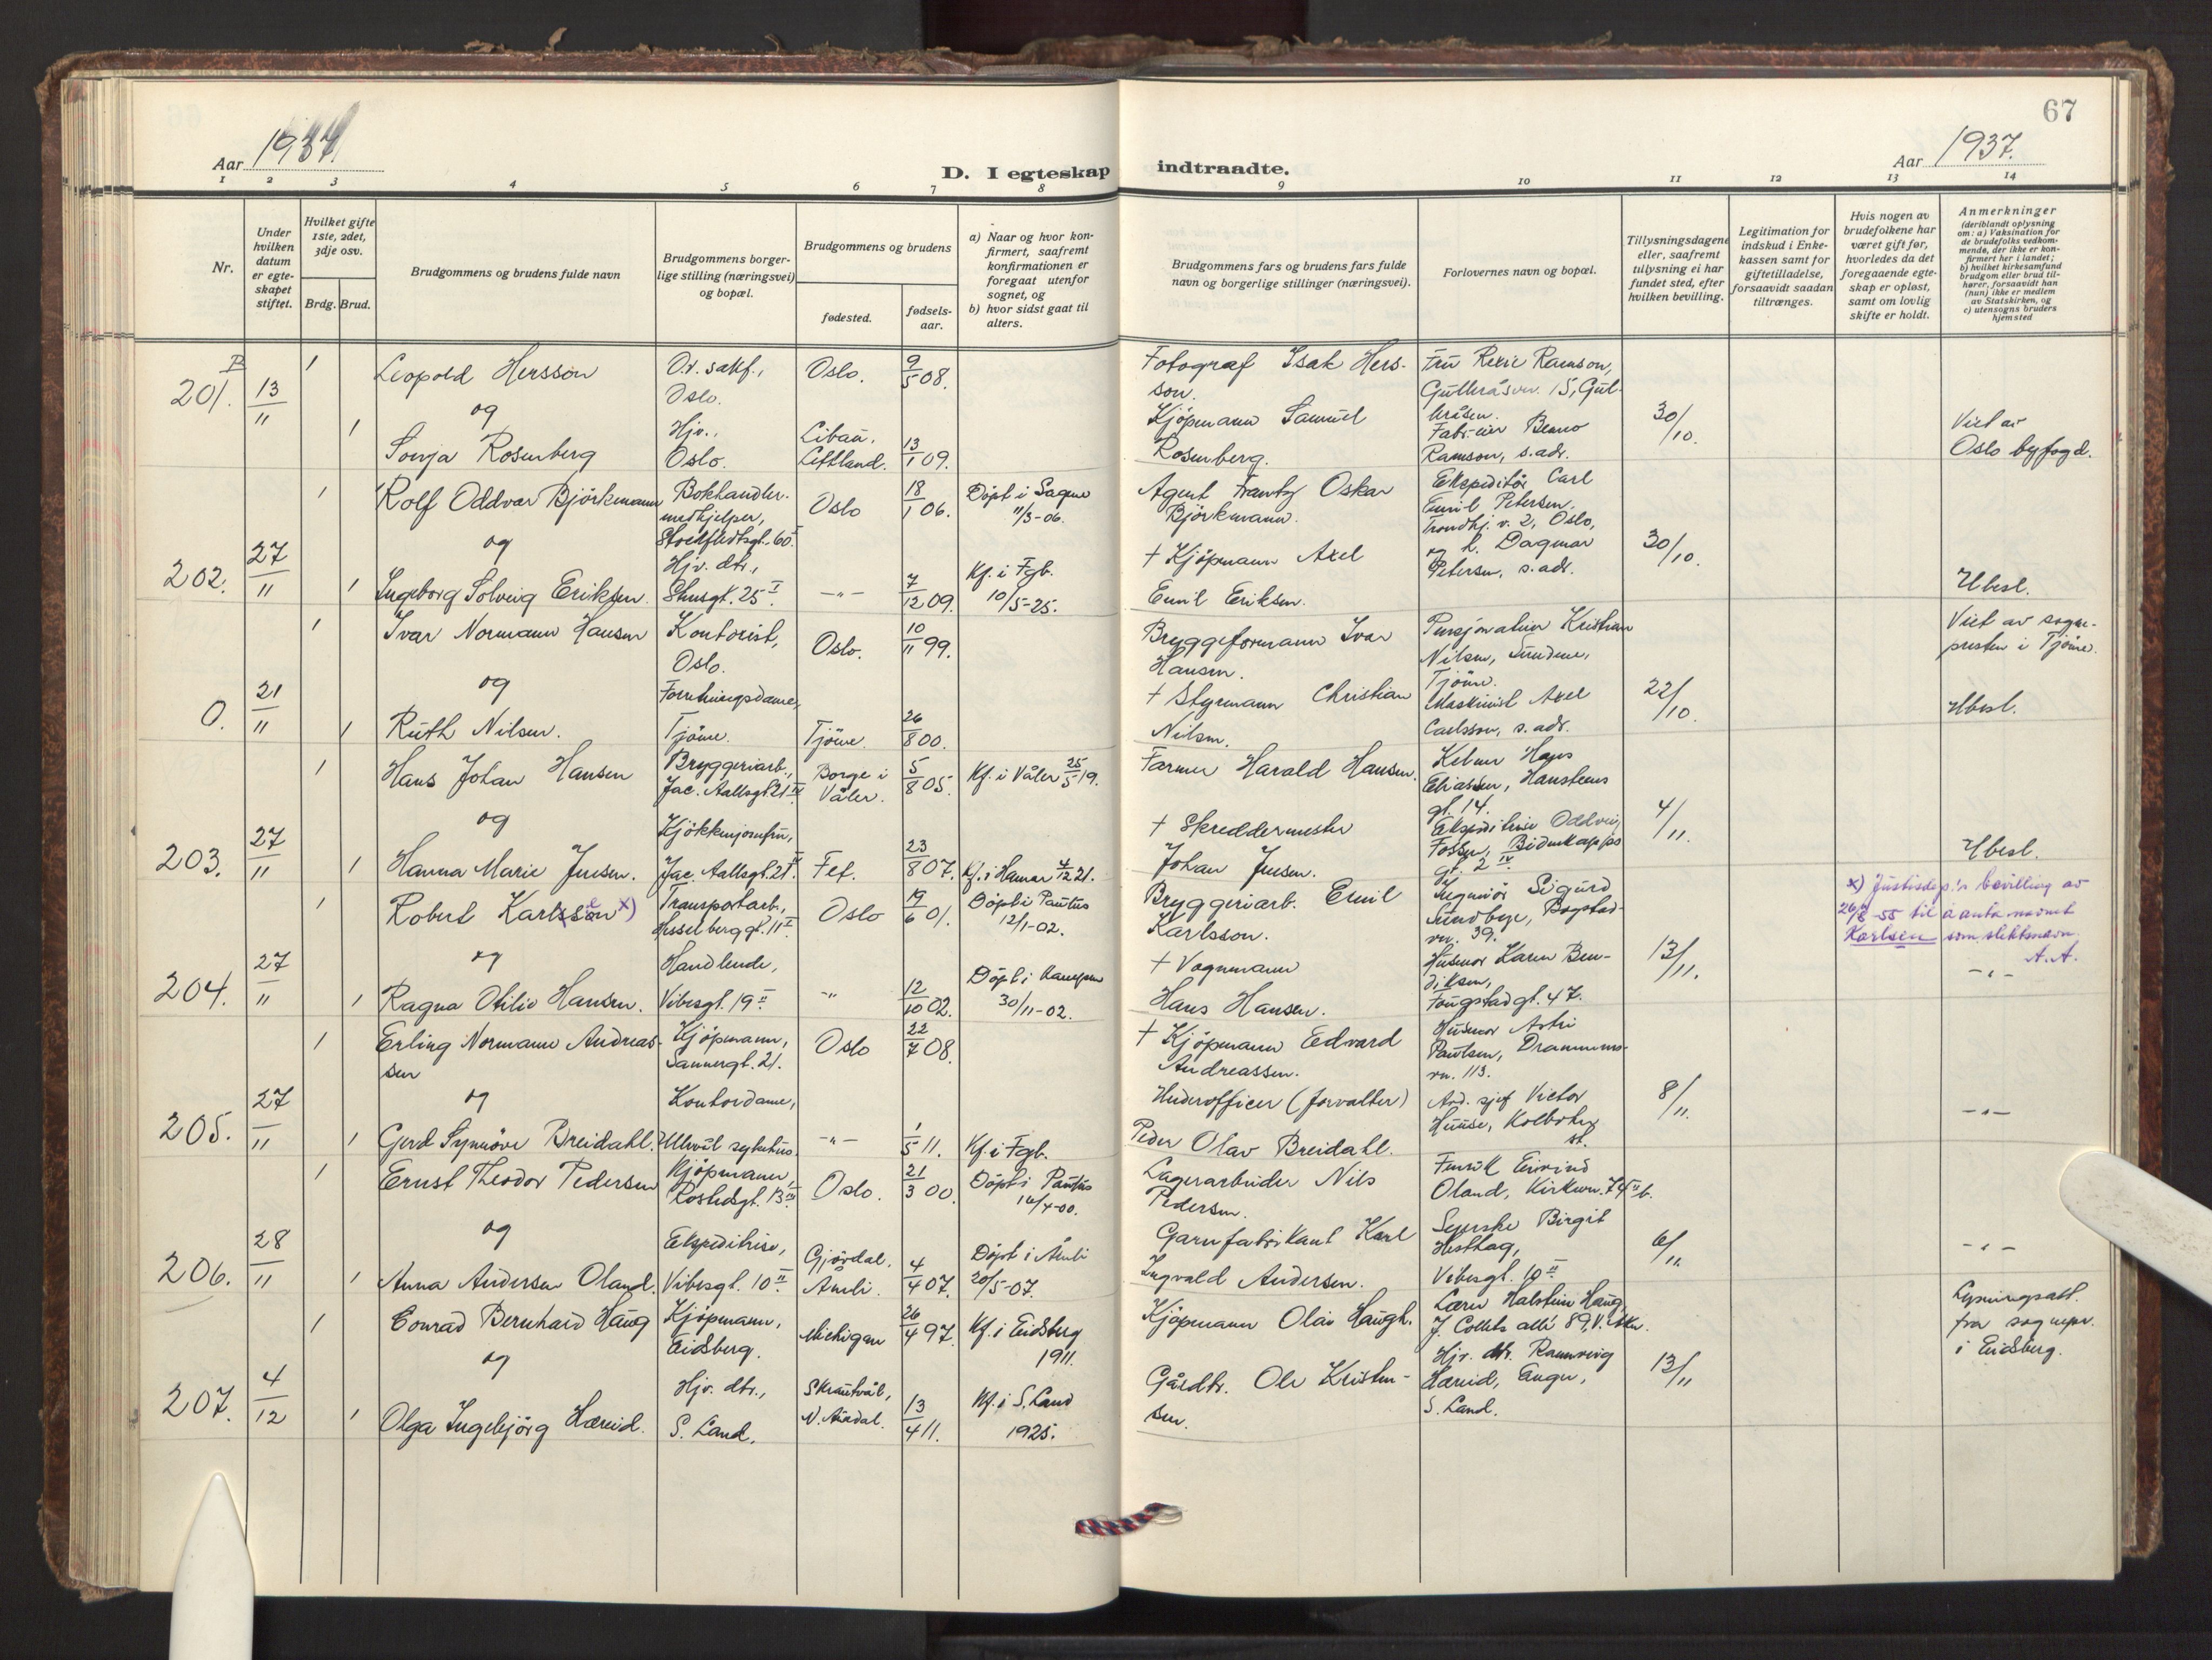 67
Aar 1937.
Aar 1937.
D. I egteskap indtraadte.
1 2 3 4 5 6 7 8 9 10 11 12 13 14
Nr.
Under hvilken datum er egteskapet stiftet.
Hvilket gifte 1ste, 2det, 3dje osv.
Brdg. Brud.
Brudgommens og brudens fulde navn
Brudgommens borgerlige stilling (næringsvei) og bopæl.
Brudgommens og brudens
fødested.
fødselsaar.
a) Naar og hvor konfirmert, saafremt konfirmationen er foregaat utenfor sognet, og
b) hvor sidst gaat til alters.
Brudgommens fars og brudens fars fulde navn og borgerlige stillinger (næringsvei).
Forlovernes navn og bopæl.
Tillysningsdagene eller, saafremt tillysning ei har fundet sted, efter hvilken bevilling.
Legitimation for indskud i Enkekassen samt for giftetilladelse, forsaavidt saadan tiltrænges.
Hvis nogen av brudefolkene har været gift før, hvorledes da det foregaaende egteskap er opløst, samt om lovlig skifte er holdt.
Anmerkninger
(deriblandt oplysning om: a) Vaksination for de brudefolks vedkommende, der ikke er konfirmert her i landet; b) hvilket kirkesamfund brudgom eller brud tilhører, forsaavidt han (hun) ikke er medlem av Statskirken, og c) utensogns bruders hjemsted
201. 13/11 1 Leopold Hersson
O.r. sakf., Oslo.
Oslo. 9/5 08.
Fotograf Isak Hersson.
Fru Rexie Ramson, Gullkråsvn. 15, Gulkråsen.
og
1 Sonja Rosenberg
Hjv., Oslo.
Libau, Lettland. 13/1 09.
Kjöpmann Samuel Rosenberg.
Fabr.eier Benno Ramson, s. adr.
30/10.
Viet av Oslo byfogd.
202. 27/11 1 Rolf Oddvar Björkmann
Bokhandlermedhjelper, Stockfledtsgt. 60 I
Oslo 18/1 06.
Döpt i Sagene 11/3-06.
Agent Frantz Oskar Björkmann.
Ekspeditör Carl Emil Petersen, Trondhj.v. 2, Oslo,
og
1 Ingeborg Solveig Eriksen.
Hjv. dtr., Shusgt. 25 I
-"- 7/12 09.
Kf. i Fgb. 10/5-25.
+ Kjöpmann Axel Emil Eriksen.
og h. Dagmar Petersen, s. adr.
30/10.
Ubesl.
0. 21/11 1 Ivar Normann Hansen
Kontorist, Oslo.
Oslo. 10/11 99.
Bryggeformann Ivar Hansen.
Pensjonateier Kristian Nilsen, Tjöme.
Viet av sognepresten i Tjöme.
og
1 Ruth Nilsen.
Forretningsdame, Tjöme.
Tjöme. 26/8 00.
+ Styrmann Christian Nilsen.
Maskinist Axel Carlsson, s. adr.
22/10.
Ubesl.
203. 27/11 1 Hans Johan Hansen
Bryggeriarb., Jac. Aallsgt. 21 IV
Borge i Våler. 5/8 05.
Kf. i Våler 25/5 19.
Farmer Harald Hansen.
Kelner Hans Eliassen, Hansteens gt. 14.
og
1 Hanna Marie Jensen.
Kjökkenjomfru, Jac. Aallsgt. 21 IV
Fet. 23/8 07.
Kf. i Hamar 4/12 21.
+ Skreddermester Johan Jensen.
Ekspeditrise Oddveig Fossen, Bidenkapps gt. 2 IV
4/11.
Ubesl.
204. 27/11 1 Robert Karlsson x)
Transportarb., Hesselberggt. 11 II
Oslo 19/6 01.
Döpt i Paulus 12/1-02.
Bryggeriarb. Emil Karlsson.
Ingeniör Sigurd Sundbye, Bogstadvn. 39.
x) Justisdep.'s bevilling av 26/8-55 til å anta navnet Karlsen som slektsnavn. A.A.
og
1 Ragna Otilie Hansen.
Handlende, Vibesgt. 19 II
-"- 12/10 02.
Döpt i Kampen 30/11-02.
+ Vognmann Hans Hansen.
Husmor Karen Bendiksen, Fougstadgt. 47.
13/11.
-"-
205. 27/11 1 Erling Normann Andreassen
Kjöpmann, Sannergt. 21.
Oslo 22/7 08.
+ Kjöpmann Edvard Andreassen.
Husmor Astri Paulsen, Drammensvn. 113.
og
1 Gerd Synnöve Breidahl.
Kontordame, Ullevål sykehus.
-"- 1/5 11.
Kf. i Fgb.
Underofficer (forvalter) Peder Olav Breidahl.
Avd. sjef Victor Huuse, Kolbotn st.
8/11.
-"-
206. 28/11 1 Ernst Theodor Pedersen
Kjöpmann, Rostedsgt. 13 III
Oslo. 21/3 00.
Döpt i Paulus 16/4-00.
Lagerarbeider Nils Pedersen.
Fenrik Eivind Oland, Kirkevn. 74 II b.
og
1 Anna Andersen Oland.
Ekspeditrise, Vibesgt. 10 II
Gjövdal, Åmli. 4/4 07.
Döpt i Åmli 20/5-07.
Garnfabrikant Karl Ingvald Andersen.
Syerske Birgit Hesthag, Vibesgt. 10 II
6/11.
-"-
207. 4/12 1 Conrad Bernhard Haug
Kjöpmann, Eidsberg.
Michigan 26/4 97.
Kf. i Eidsberg 1911.
Kjöpmann Olai Haugh.
Lærer Halstein Haug, J. Collets allé 89, V. Aker.
Lysningsatt. fra sognepr. i Eidsberg.
og
1 Olga Ingebjörg Hæreid.
Hjv. dtr., S. Land.
Skrautvål, N. Aurdal. 13/4 11.
Kf. i S. Land 1925.
Gårdbr. Ole Kristensen.
Hjv. dtr. Rannveig Hæreid, Enger, S. Land.
13/11